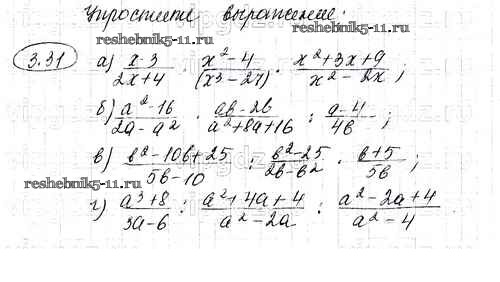 Упростите выражение:
reshebnik5-11.ru
3.31 а) x-3/2x+4 : x²-4/(x³-27) · x²+3x+9/x²-2x ;
б) a²-16/2a-a² · ab-2b/a²+8a+16 : a-4/4b ;
в) b²-10b+25/5b-10 : b²-25/2b-b² · b+5/5b ;
reshebnik5-11.ru
г) a³+8/3a-6 : a²+4a+4/a²-2a : a²-2a+4/a²-4